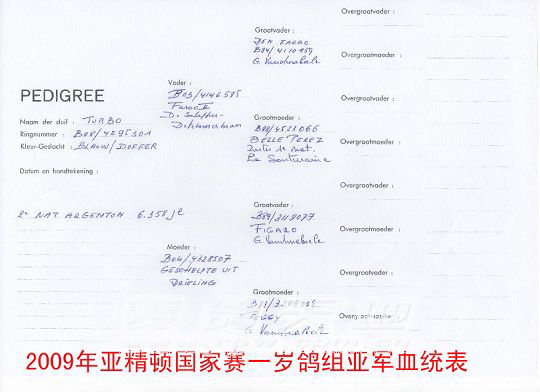 PEDIGREE
Naam der duif : TURBO
Ringnummer : B08/4295301
Kleur-Geslacht : BLAUW/DOFFER
Datum en handtekening :
2e NAT. ARGENTON 6.358
Vader :
B03/4146595
Moeder :
B04/4328507
GESCHELPTE UIT
DRIELING
Grootvader :
DEN FARAO
G. Vandenabeele
Grootmoeder :
B98/4523066
BELLE PEREZ
La Souterraine
Grootvader :
B89/3118077
FIGARO
G. Vandenabeele
Grootmoeder :
PEGGY
G. Vandenabeele
Overgrootvader :
Overgrootmoeder :
Overgrootvader :
Overgrootmoeder :
Overgrootvader :
Overgrootmoeder :
Overgrootvader :
Overgrootmoeder :
2009年亚精顿国家赛一岁鸽组亚军血统表